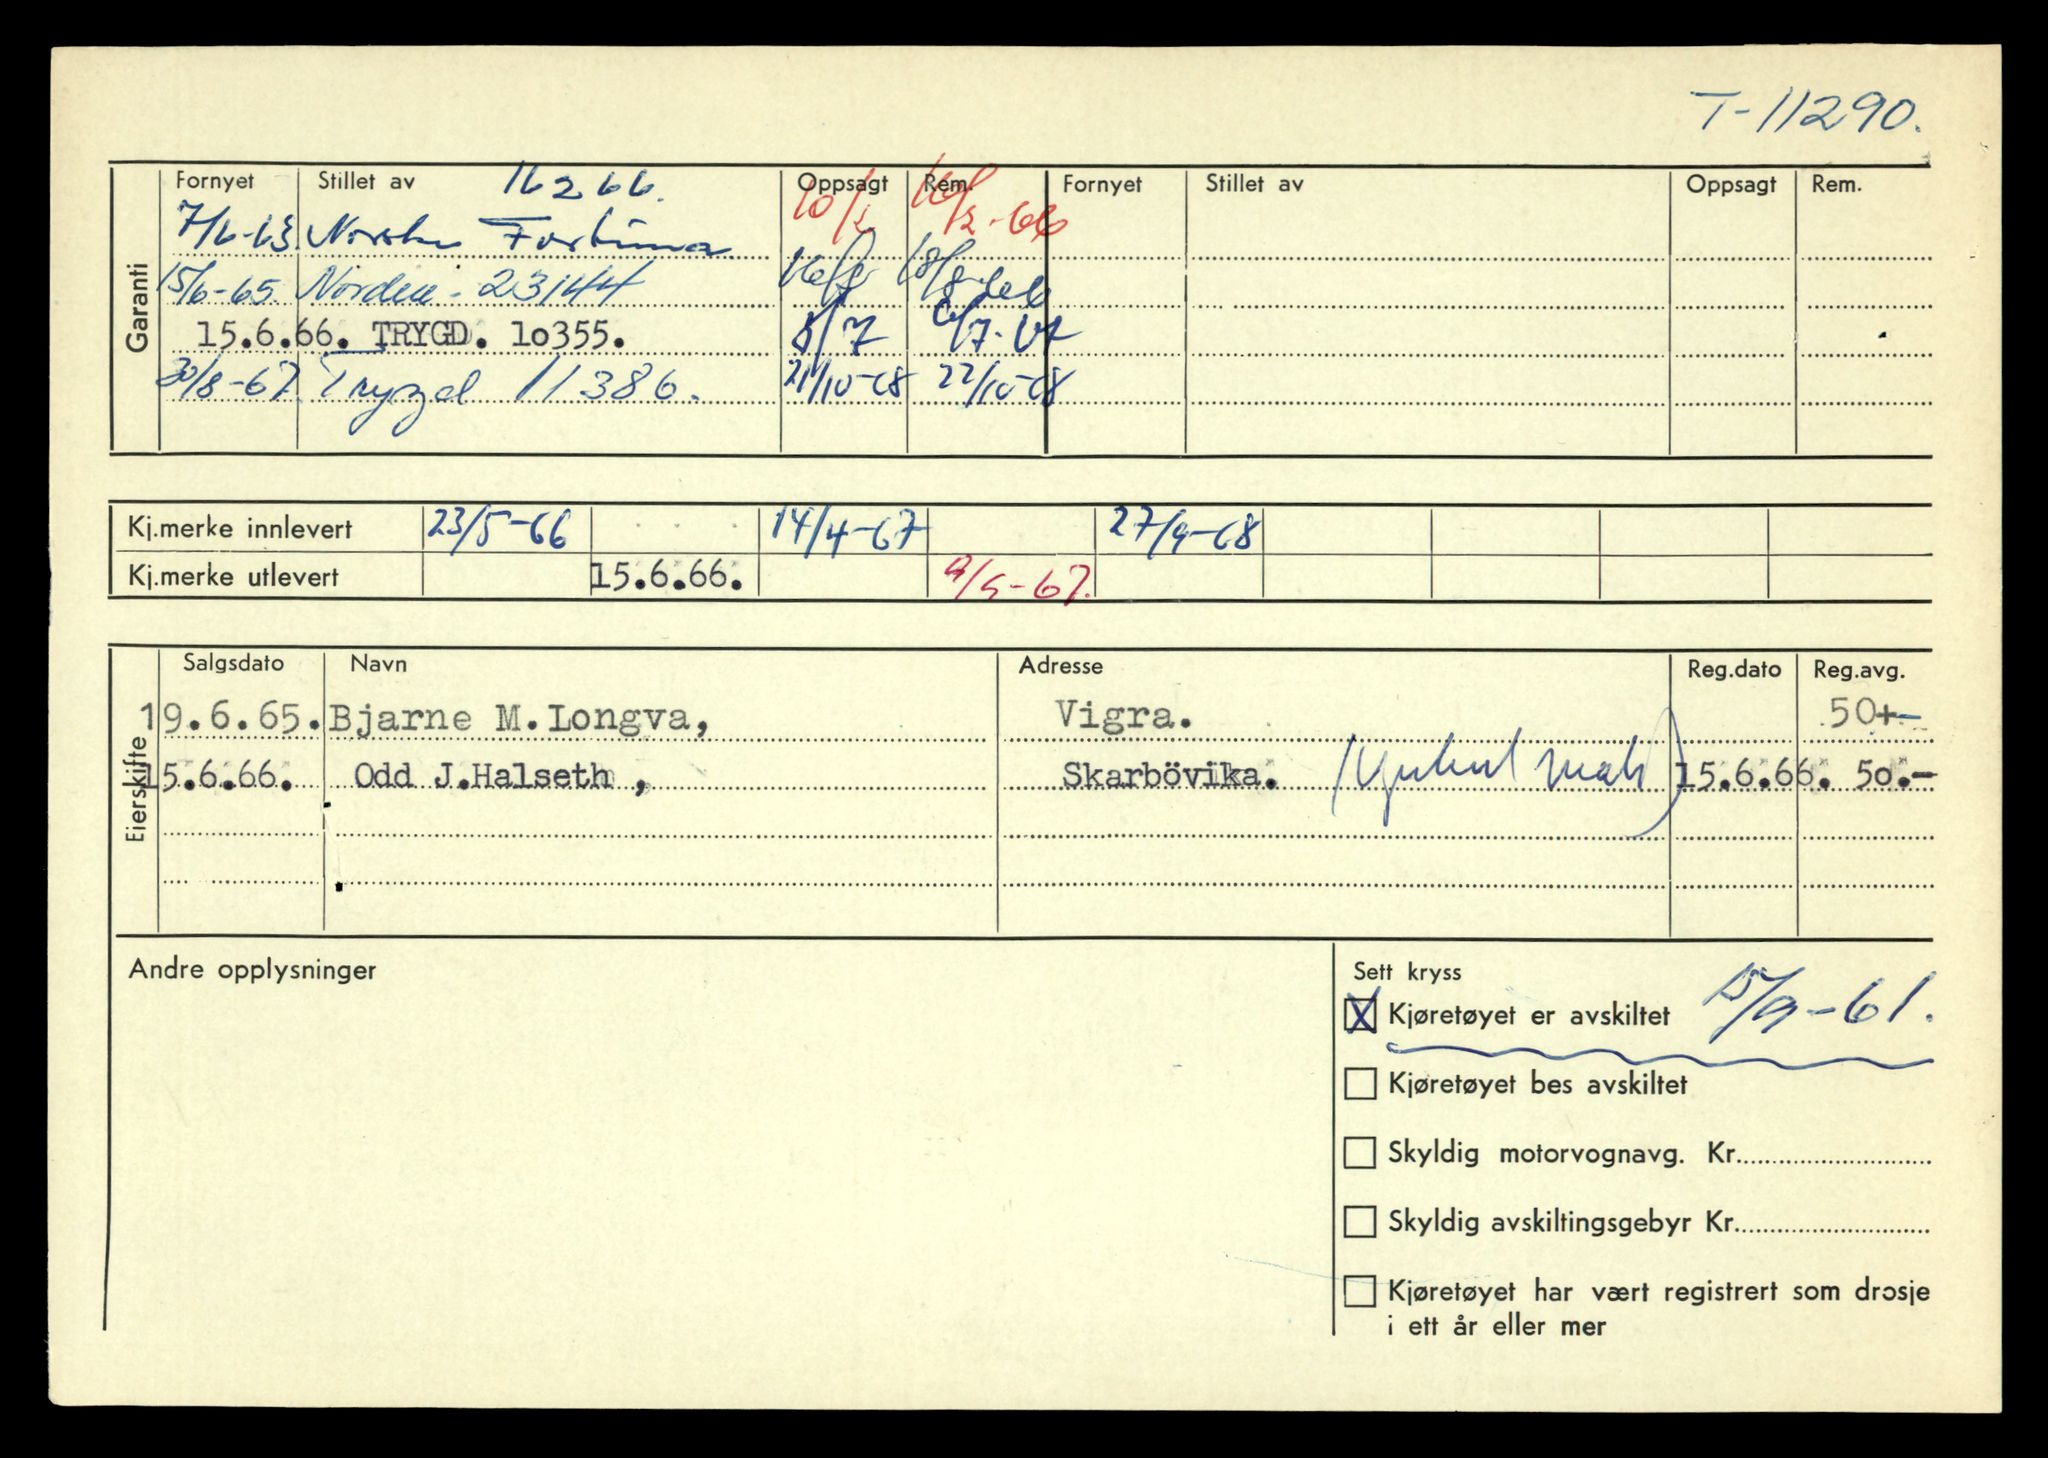 T-11290.
Garanti
Fornyet Stillet av 16266. Oppsagt Rem. Fornyet Stillet av Oppsagt Rem.
7/6-63 Norske Fortuna 10/2 -66
15/6-65. Norden - 23144
15.6.66. TRYGD. 10355. 8/7
30/8-67 Trygd 11386. 21/10-68 22/10-68
Kj.merke innlevert 23/5-66 14/4-67 27/9-68
Kj.merke utlevert 15.6.66. -67.
Eierskifte
Salgsdato Navn Adresse Reg.dato Reg.avg.
19.6.65. Bjarne M.Longva, Vigra. 50+-
15.6.66. Odd J.Halseth , Skarbövika. 15.6.66. 50.-
Andre opplysninger
Sett kryss
X Kjøretøyet er avskiltet /9-61.
Kjøretøyet bes avskiltet
Skyldig motorvognavg. Kr.
Skyldig avskiltingsgebyr Kr.
Kjøretøyet har vært registrert som drosje
i ett år eller mer